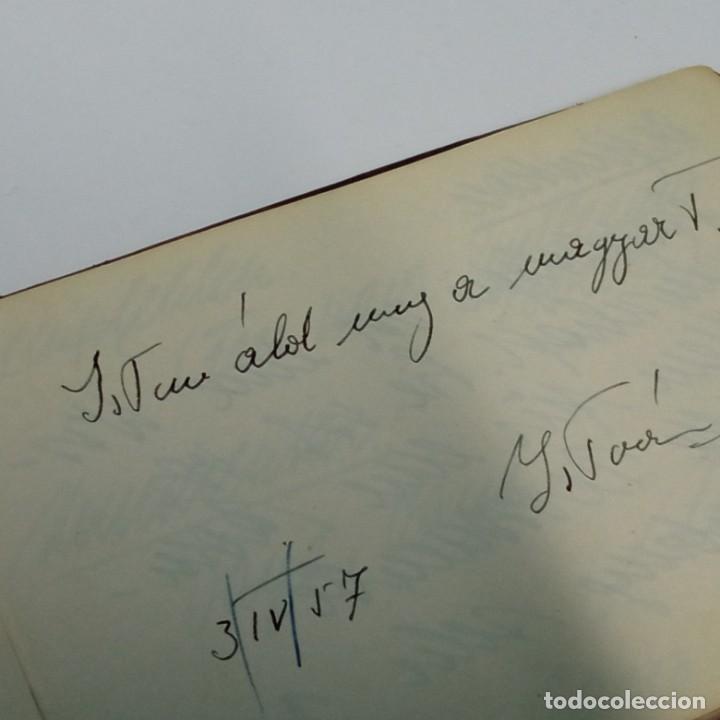 Isten áld meg a magyart.
István
3/IV/57
todocoleccion